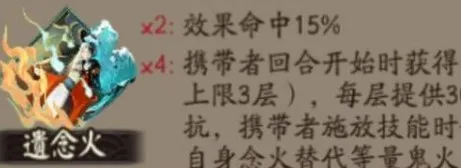 x2: 效果命中15%
x4: 携带者回合开始时获得
上限3层），每层提供3
抗，携带者施放技能时
自身念火替代等量鬼火
遺念火